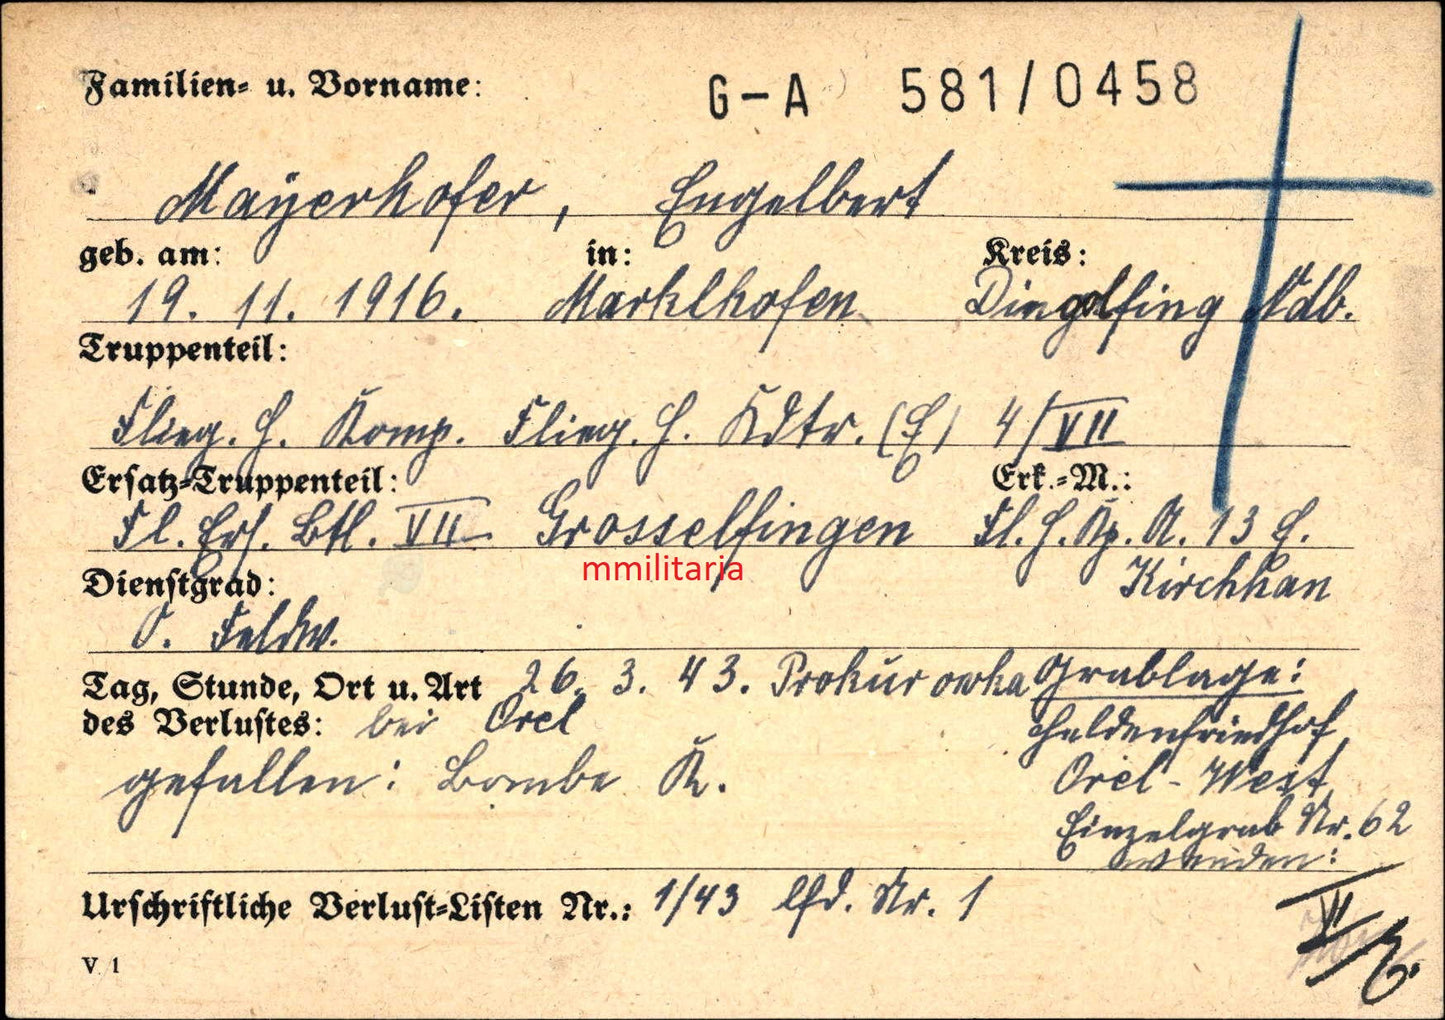 Familien- u. Vorname:
G-A 581/0458
Mayerhofer, Engelbert
geb. am: in: Kreis:
19. 11. 1916. Marklhofen Dingolfing Ndb.
Truppenteil:
Flieg. H. Komp. Flieg. H. Kdtr. (E) 4/VII
Ersatz-Truppenteil: Erk.-M.:
Fl. Ers. Btl. VII Grosselfingen Fl. H. Kp. A. 13 E.
mmilitaria
Kirchhan
Dienstgrad:
O. Feldw.
Tag, Stunde, Ort u. Art 26. 3. 43. Prokurowka Grablage:
des Verlustes: bei Orel Heldenfriedhof
gefallen: Bombe K. Orel-West
Einzelgrab Nr. 62
wenden:
Urschriftliche Verlust-Listen Nr.: 1/43 lfd. Nr. 1
V. 1